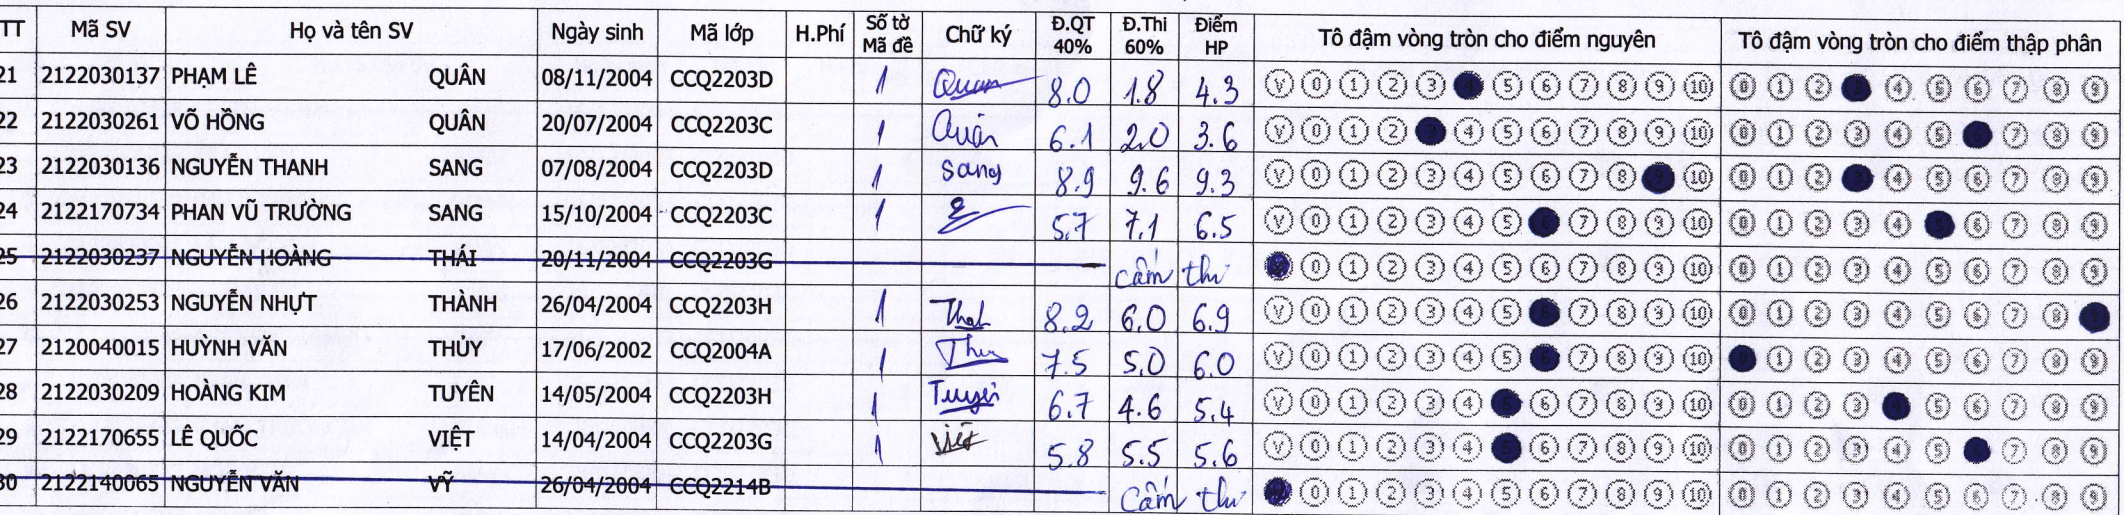 TT Mã SV Họ và tên SV Ngày sinh Mã lớp H.Phí Số tờ Mã đề Chữ ký Đ.QT 40% Đ.Thi 60% Điểm HP Tô đậm vòng tròn cho điểm nguyên Tô đậm vòng tròn cho điểm thập phân
21 2122030137 PHẠM LÊ QUÂN 08/11/2004 CCQ2203D 1 Quân 8.0 1.8 4.3 V 0 1 2 3 4 5 6 7 8 9 10 0 1 2 3 4 5 6 7 8 9
22 2122030261 VÕ HỒNG QUÂN 20/07/2004 CCQ2203C 1 Quân 6.1 2.0 3.6 V 0 1 2 3 4 5 6 7 8 9 10 0 1 2 3 4 5 6 7 8 9
23 2122030136 NGUYỄN THANH SANG 07/08/2004 CCQ2203D 1 Sang 8.9 9.6 9.3 V 0 1 2 3 4 5 6 7 8 9 10 0 1 2 3 4 5 6 7 8 9
24 2122170734 PHAN VŨ TRƯỜNG SANG 15/10/2004 CCQ2203C 1 5.7 7.1 6.5 V 0 1 2 3 4 5 6 7 8 9 10 0 1 2 3 4 5 6 7 8 9
25 2122030237 NGUYỄN HOÀNG THÁI 20/11/2004 CCQ2203G cấm thi V 0 1 2 3 4 5 6 7 8 9 10 0 1 2 3 4 5 6 7 8 9
26 2122030253 NGUYỄN NHỰT THÀNH 26/04/2004 CCQ2203H 1 8.2 6.0 6.9 V 0 1 2 3 4 5 6 7 8 9 10 0 1 2 3 4 5 6 7 8 9
27 2120040015 HUỲNH VĂN THỦY 17/06/2002 CCQ2004A 1 7.5 5.0 6.0 V 0 1 2 3 4 5 6 7 8 9 10 0 1 2 3 4 5 6 7 8 9
28 2122030209 HOÀNG KIM TUYÊN 14/05/2004 CCQ2203H 1 Tuyên 6.7 4.6 5.4 V 0 1 2 3 4 5 6 7 8 9 10 0 1 2 3 4 5 6 7 8 9
29 2122170655 LÊ QUỐC VIỆT 14/04/2004 CCQ2203G 1 Việt 5.8 5.5 5.6 V 0 1 2 3 4 5 6 7 8 9 10 0 1 2 3 4 5 6 7 8 9
30 2122140065 NGUYỄN VĂN VỸ 26/04/2004 CCQ2214B Cấm thi V 0 1 2 3 4 5 6 7 8 9 10 0 1 2 3 4 5 6 7 8 9